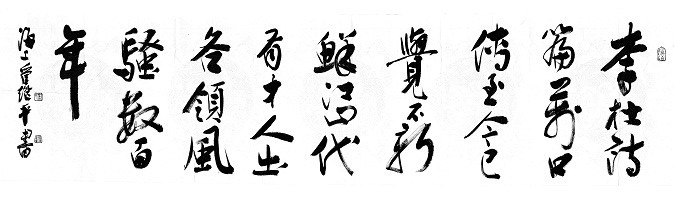 李杜詩
篇萬口
傳至今已
覺不新
鮮江山代
有才人出
各領風
騷數百
年
海上管繼平書